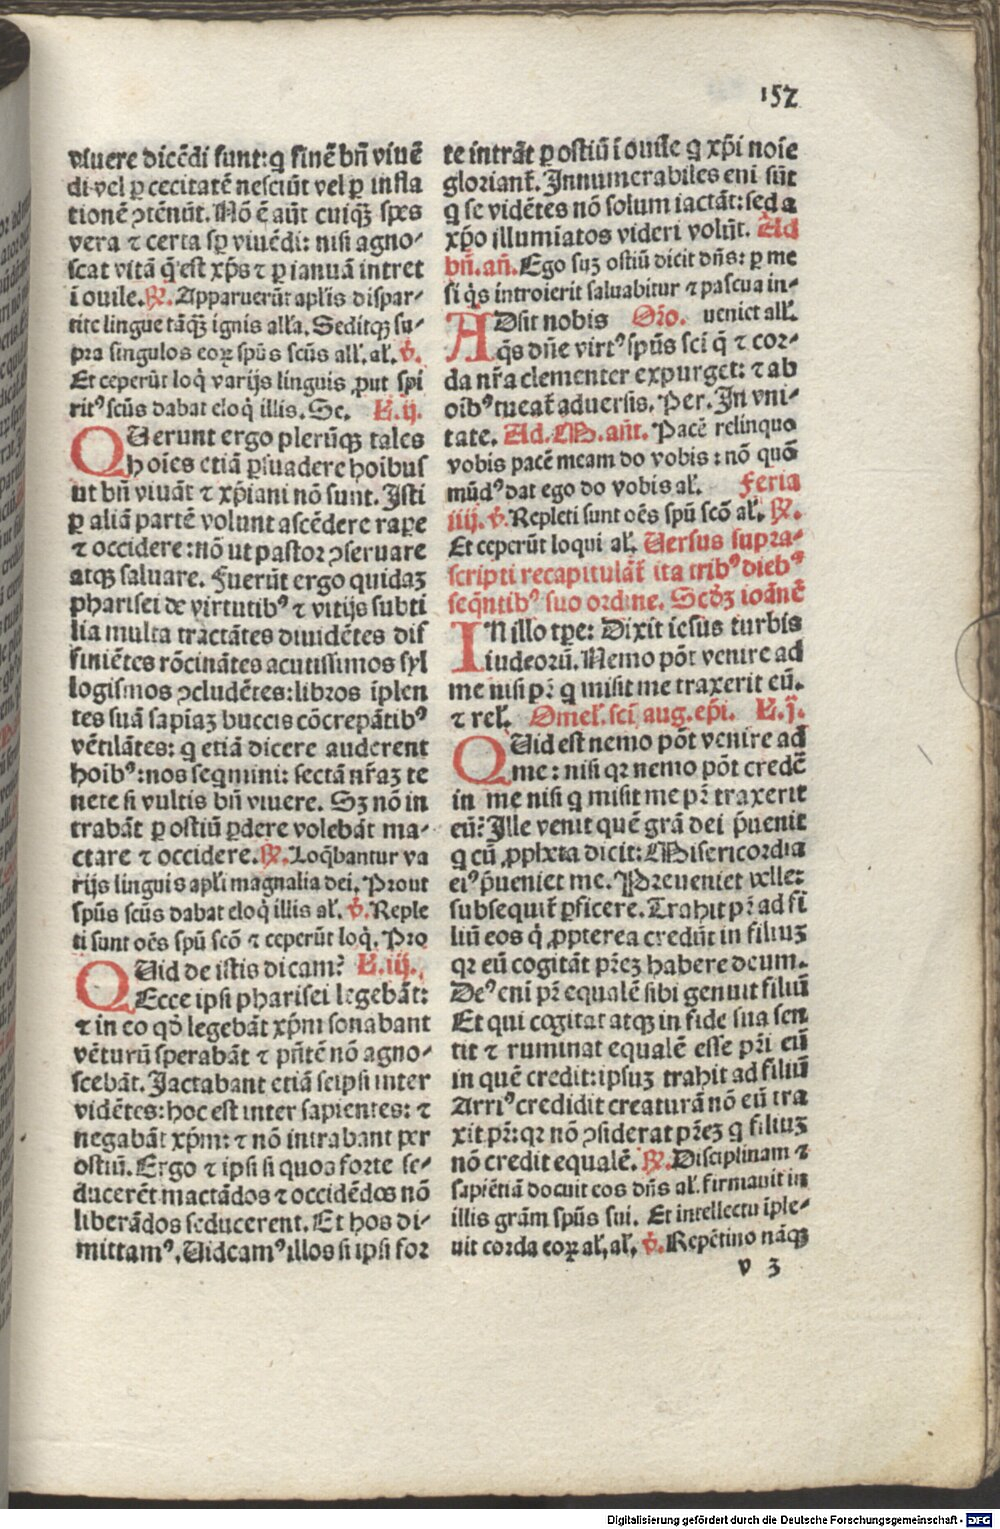 157
viuere dicẽdi sunt: q̃ finẽ bñ viuẽ
di vel p̱ cecitatẽ nesciũt vel p̱ infla
tionẽ ↄtẽnũt. Nõ ẽ aũt cuiq̃ꝫ spes
vera ⁊ certa sp̱ viuẽdi: nisi agno-
scat vitã q̃ est xp̃s ⁊ p̱ ianuã intret
ĩ ouile. ℟. Apparuerũt apl̃is dispar-
tite lingue tãq̃ꝫ ignis all̃a. Seditqꝫ su-
pra singulos eoꝝ spũs scũs all̃. al̃. ℣.
Et ceperũt loq̃ varijs linguis ꝓut spi
ritꝰ scũs dabat eloq̃ illis. Se. L.ij.
QUerunt ergo pleriq̃ꝫ tales
hoĩes etiã p̱suadere hoĩbus
ut bñ viuãt ⁊ xp̃iani nõ sunt. Isti
p̱ aliã partẽ volunt ascẽdere rape
⁊ occidere: nõ ut pastor ↄseruare
atqꝫ saluare. Fuerũt ergo quidaꝫ
pharisei de virtutibꝰ ⁊ vitijs subti
lia multa tractãtes diuidẽtes dif
finiẽtes rõcinãtes acutissimos syl
logismos ↄcludẽtes: libros ĩplen
tes suã sapiaꝫ buccis cõcrepãtibꝰ
vẽtilãtes: q̃ etiã dicere auderent
hoĩbꝰ: nos seqmini: sectã nr̃aꝫ te
nete si vultis bñ viuere. Sꝫ nõ in
trabãt p̱ ostiũ p̱dere volebãt ma-
ctare ⁊ occidere. ℟. Loq̃bantur va
rijs linguis apl̃i magnalia dei. Prout
spũs scũs dabat eloq̃ illis al̃. ℣. Reple
ti sunt oẽs spũ scõ ⁊ ceperũt loq̃. Pro
QUid de istis dicam? L.iij.
Ecce ipsi pharisei legebãt:
⁊ in eo qd̕ legebãt xp̃m sonabant
vẽturũ sperabãt ⁊ pñtẽ nõ agno-
scebãt. Jactabant etiã seipsi inter
vidẽtes: hoc est inter sapientes: ⁊
negabãt xp̃m: ⁊ nõ intrabant per
ostiũ. Ergo ⁊ ipsi si quos forte se-
ducerẽt mactãdos ⁊ occidẽdos nõ
liberãdos seducerent. Et hos di-
mittamꝰ. Uideamꝰ illos si ipsi for
te intrãt p̱ ostiũ ĩ ouile q̃ xp̃i noĩe
gloriant̃. Innumerabiles eni sũt
q̃ se vidẽtes nõ solum iactãt: sed a
xp̃o illumĩatos videri volũt. Ad
bñ. añ. Ego suꝫ ostiũ dicit dñs: p̱ me
si q̃s introierit saluabitur ⁊ pascua in-
ADsit nobis Oro. ueniet all̃.
q̃s dñe virtꝰ spũs sci q̃ ⁊ cor-
da nr̃a clementer expurget: ⁊ ab
oĩbꝰ tueat̃ aduersis. Per. In vni-
tate. Ad. M. añt. Pacẽ relinquo
vobis pacẽ meam do vobis: nõ quõ
mũdꝰ dat ego do vobis al̃. Feria
iiij. ℣. Repleti sunt oẽs spũ scõ al̃. ℟.
Et ceperũt loqui al̃. Uersus supra-
scripti recapitulãt̃ ita tribꝰ diebꝰ
seq̃ntibꝰ suo ordine. Scd̕ꝫ ioãnẽ
IN illo tp̱e: Dixit iesus turbis
iudeorũ. Nemo põt venire ad
me nisi pr̃ q̃ misit me traxerit eũ.
⁊ rel̃. Omel̃. sci aug. ep̃i. L.j.
QUid est nemo põt venire ad
me: nisi qꝛ nemo põt credẽ
in me nisi q̃ misit me pr̃ traxerit
eũ? Ille venit quẽ grã dei p̃uenit
q̃ cũ ꝓph̃eta dicit: Misericordia
eiꝰ p̃ueniet me. Preueniet velle:
subsequit̃ p̱ficere. Trahit pr̃ ad fi
liũ eos q̃ ꝓpterea credũt in filiuꝫ
qꝛ eũ cogitãt pr̃eꝫ habere deum.
Deꝰ eni pr̃ equalẽ sibi genuit filiũ
Et qui cogitat atqꝫ in fide sua sen
tit ⁊ ruminat equalẽ esse pr̃i eũ
in quẽ credit: ipsuꝫ trahit ad filiũ
Arriꝰ credidit creaturã nõ eũ tra
xit pr̃: qꝛ nõ ↄsiderat pr̃eꝫ q̃ filiuꝫ
nõ credit equalẽ. ℟. Disciplinam ⁊
sapiẽtiã docuit eos dñs al̃. firmauit in
illis grãm spũs sui. Et intellectu ĩple-
uit corda eoꝝ al̃, al̃. ℣. Repẽtino nãqꝫ
v 3
Digitalisierung gefördert durch die Deutsche Forschungsgemeinschaft - DFG